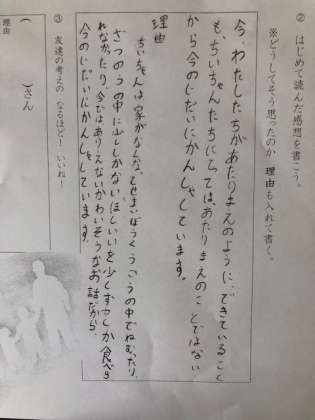 ② はじめて読んだ感想を書こう。
※どうしてそう思ったのか 理由も入れて書く。
今、わたしたちがあたりまえのように、できていること
も、ちいちゃんたちにとっては、あたりまえのことではない
から今のじだいにかんしゃしています。
理由
ちいちゃんは家がなくなってせまいぼうくうごうの中でねむったり、
ざつのうの中に少ししかない、ほしいいを少しずつしか食べら
れなかったり、今ではありえないかわいそうなお話だから、
今のじだいにかんしゃしています。
③ 友達の考えの なるほど！ いいね！
( )さん
理由